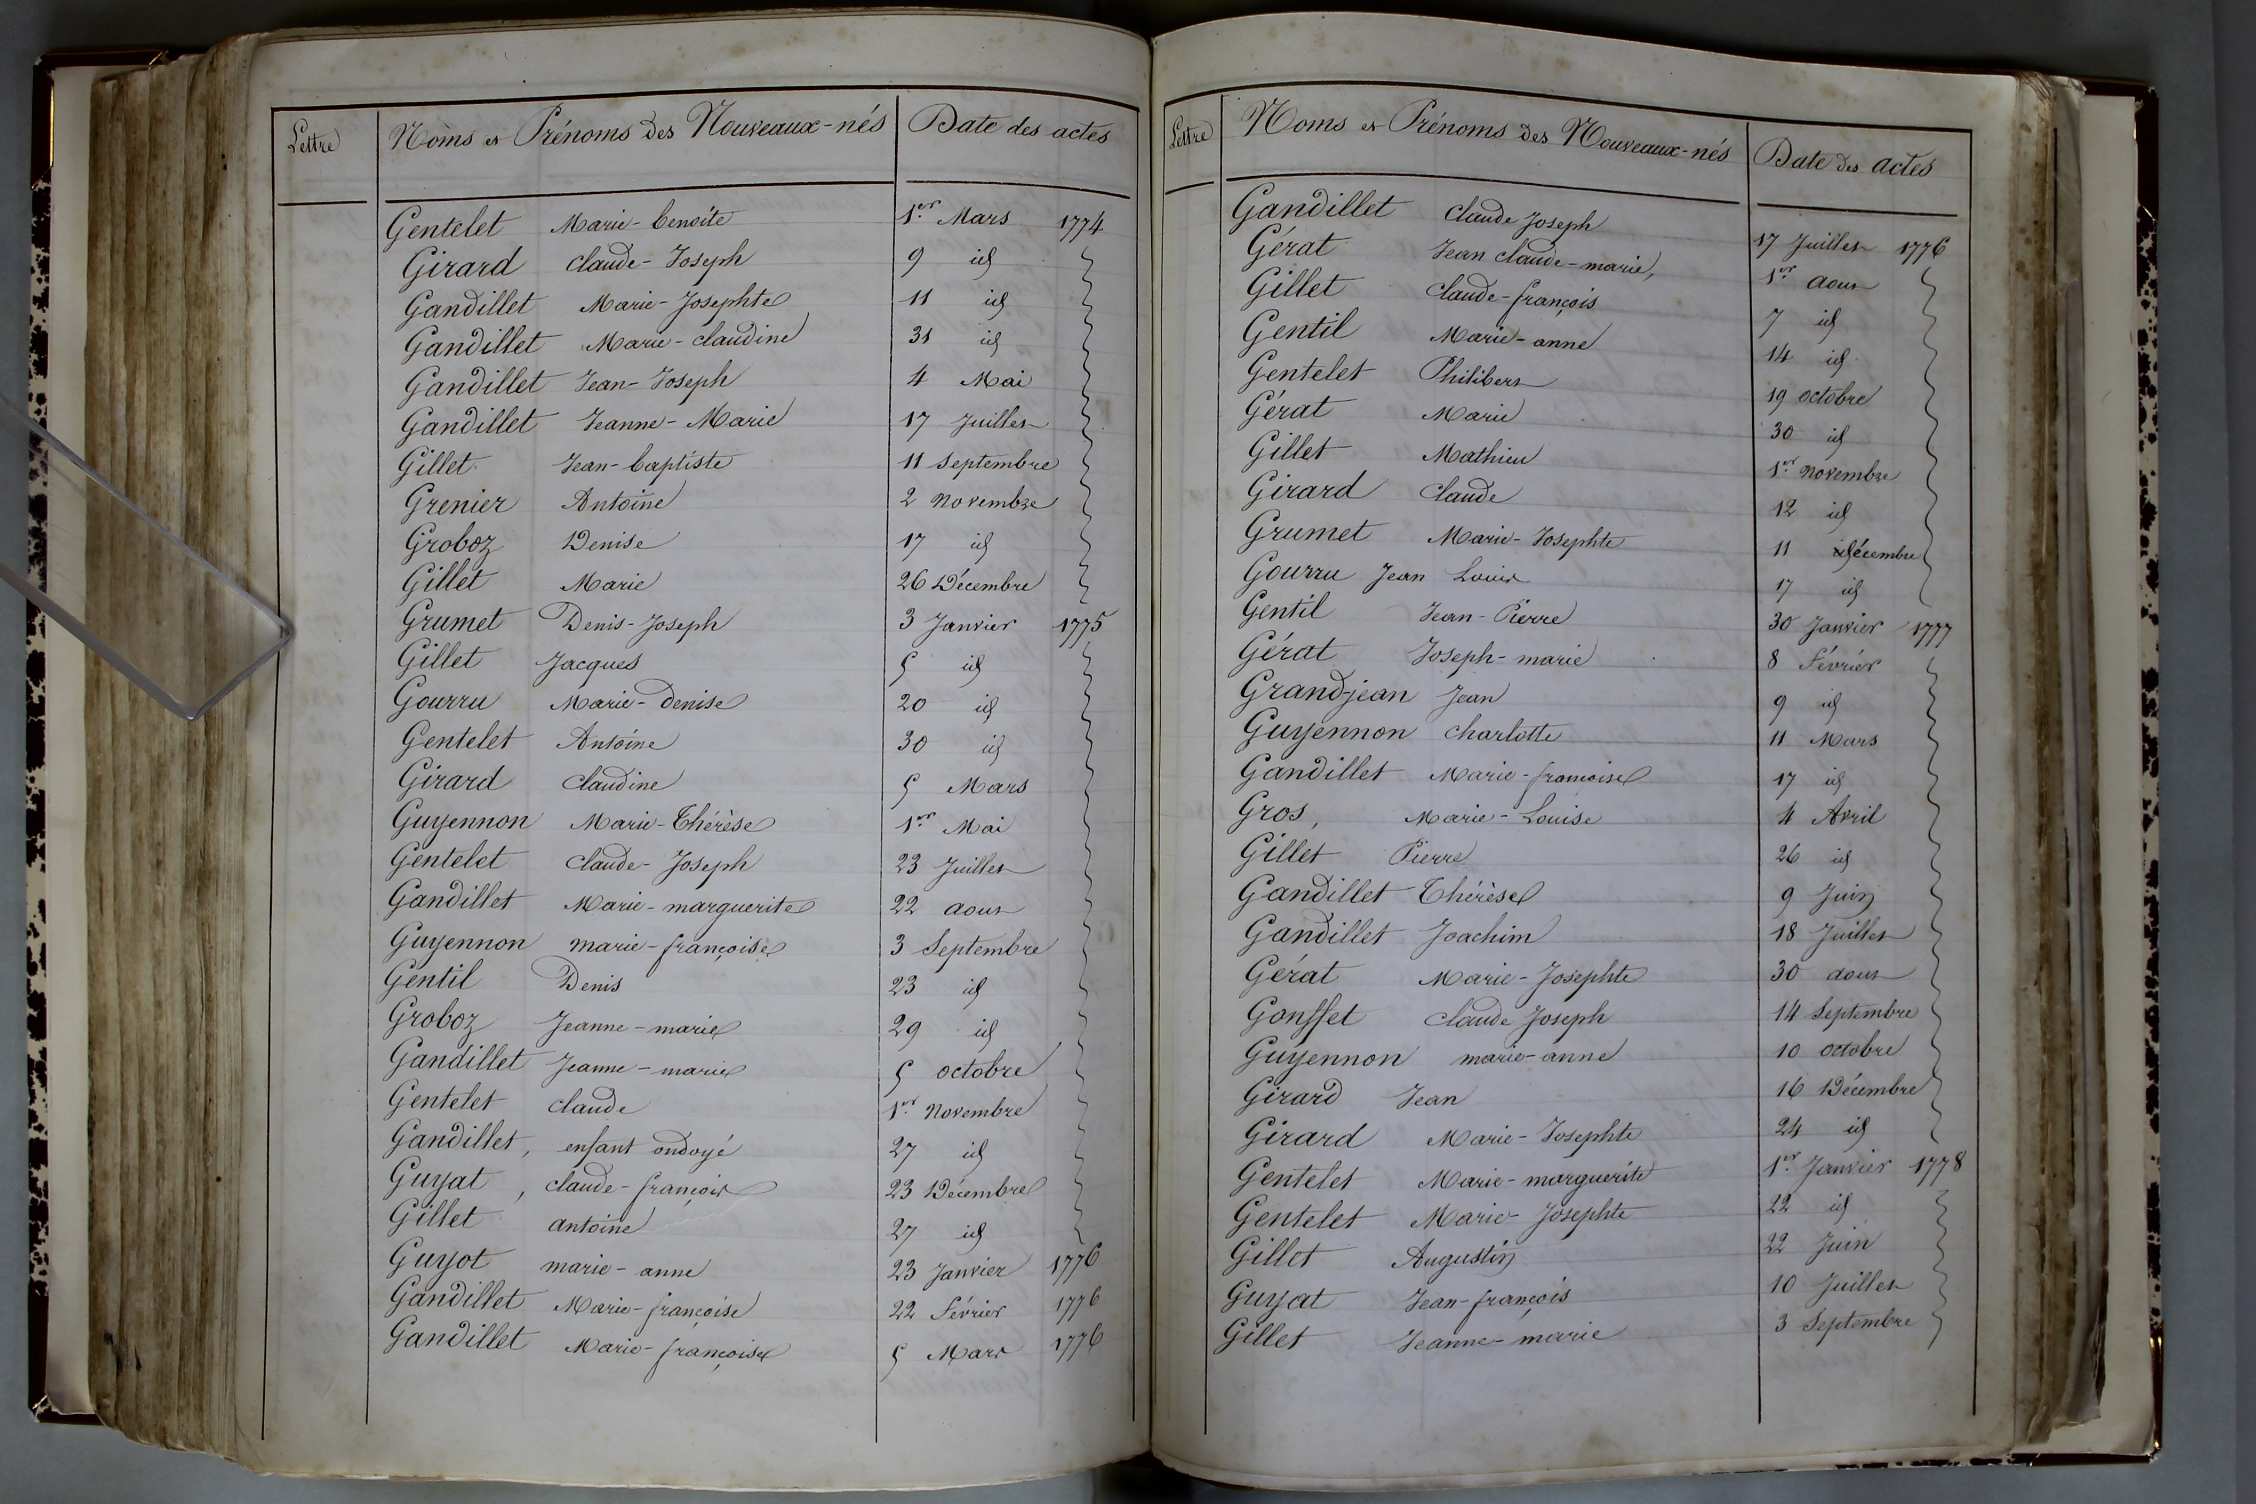 Lettre Noms et Prénoms des Nouveaux-nés Date des actes
Gentelet Marie-benoite 1er Mars 1774
Girard claude-Joseph 9 id
Gandillet Marie-Josephte 11 id
Gandillet Marie-claudine 31 id
Gandillet Jean-Joseph 4 Mai
Gandillet Jeanne-Marie 17 Juillet
Gillet Jean-baptiste 11 Septembre
Grenier Antoine 2 Novembre
Groboz Denise 17 id
Gillet Marie 26 Décembre
Grumet Denis-Joseph 3 Janvier 1775
Gillet Jacques 5 id
Gourru Marie-Denise 20 id
Gentelet Antoine 30 id
Girard Claudine 5 Mars
Guyennon Marie-Thérèse 1er Mai
Gentelet Claude-Joseph 23 Juillet
Gandillet Marie-marguerite 22 aout
Guyennon marie-françoise 3 Septembre
Gentil Denis 23 id
Groboz Jeanne-marie 29 id
Gandillet Jeanne-marie 5 octobre
Gentelet claude 1er Novembre
Gandillet, enfant ondoyé 27 id
Guyat, claude-françois 23 Décembre
Gillet antoine 27 id
Guyot marie-anne 23 Janvier 1776
Gandillet Marie-françoise 22 Février 1776
Gandillet Marie-françoise 5 Mars 1776
Lettre Noms et Prénoms des Nouveaux-nés Date des actes
Gandillet Claude Joseph 17 Juillet 1776
Gérat Jean claude-marie, 1er aout
Gillet claude-françois 7 id
Gentil Marie-anne 14 id
Gentelet Philibert 19 octobre
Gérat Marie 30 id
Gillet Mathieu 1er Novembre
Girard Claude 12 id
Grumet Marie-Josephte 11 décembre
Gourru Jean Louis 17 id
Gentil Jean-Pierre 30 Janvier 1777
Gérat Joseph-marie 8 Février
Grand-jean Jean 9 id
Guyennon charlotte 11 Mars
Gandillet Marie-françoise 17 id
Gros, Marie-Louise 4 Avril
Gillet Pierre 26 id
Gandillet Thérèse 9 Juin
Gandillet Joachim 18 Juillet
Gérat Marie-Josephte 30 aout
Gonffet Claude Joseph 14 Septembre
Guyennon marie-anne 10 octobre
Girard Jean 16 Décembre
Girard Marie-Josephte 24 id
Gentelet Marie-marguerite 1er Janvier 1778
Gentelet Marie-Josephte 22 id
Gillot Augustin 22 Juin
Guyat Jean-françois 10 Juillet
Gillet Jeanne-marie 3 Septembre